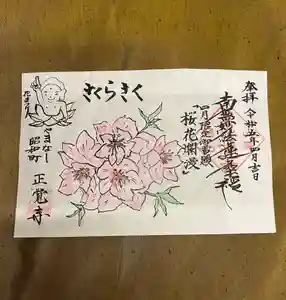 奉拝 令和五年四月吉日
南無妙法蓮華経
四月限定御首題
『桜花爛漫』
さくらさく
やまなし
昭和町
正覚寺